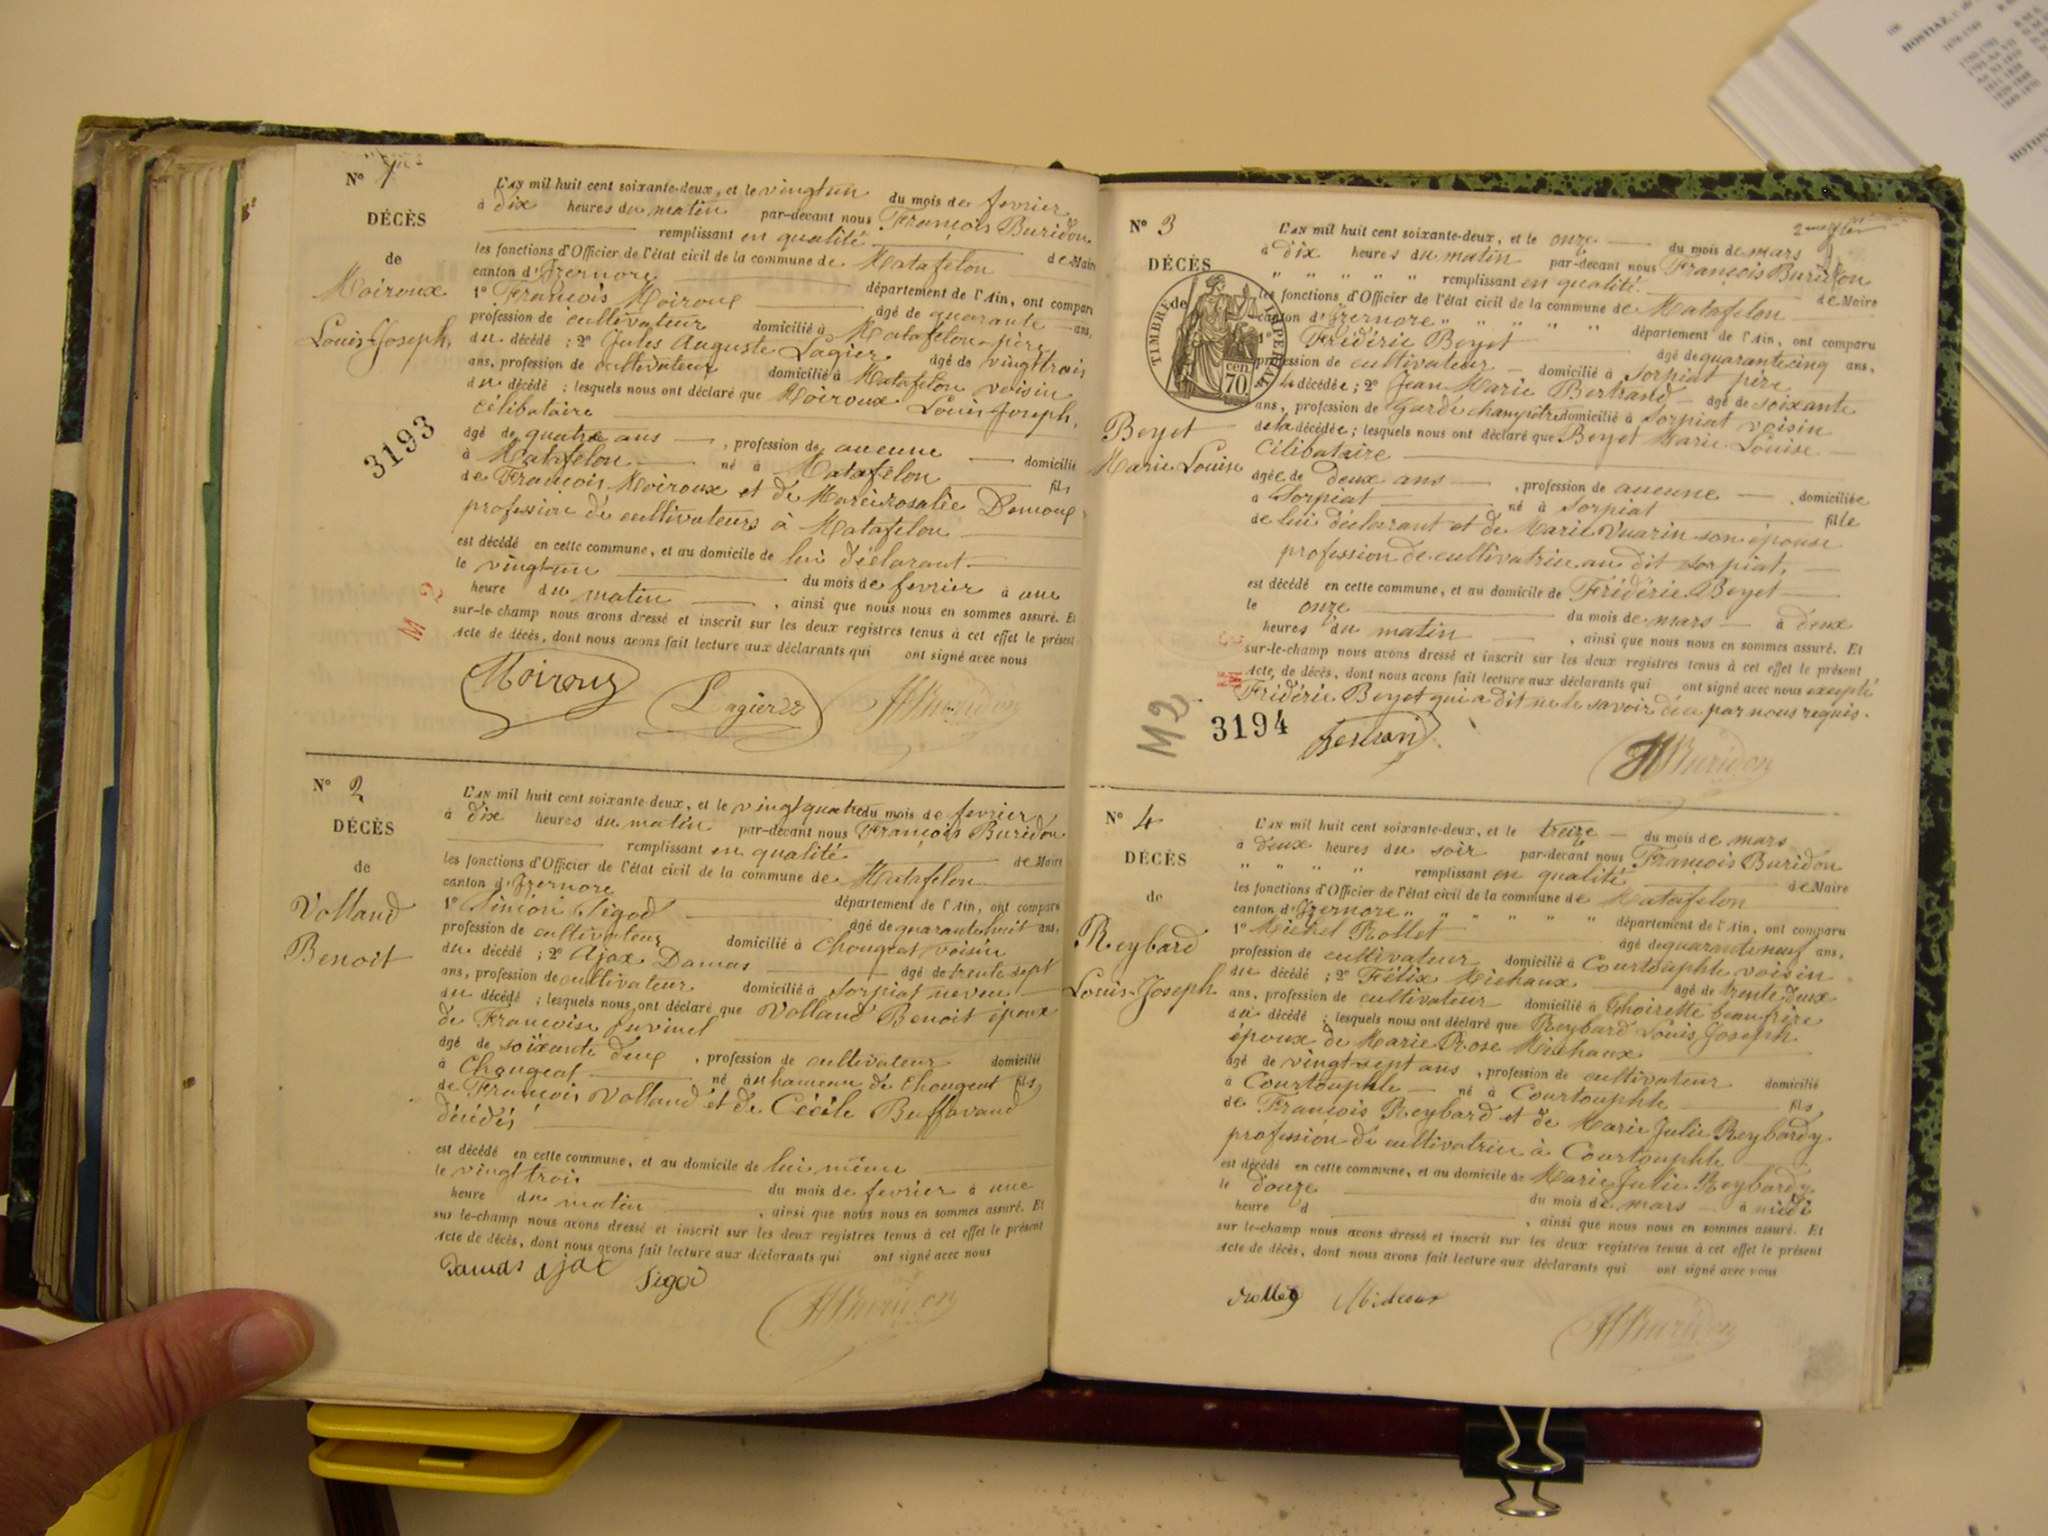 N° 1
DÉCÈS
de
Moiroux
Louis-Joseph,
3193
M 2
L'AN mil huit cent soixante-deux, et le vingt un du mois de fevrier
à dix heures du matin par-devant nous François Buridon
remplissant en qualité de Maire
les fonctions d'Officier de l'état civil de la commune de Matafelon
canton d'Izernore département de l'Ain, ont comparu
1° François Moiroux âgé de quarante ans,
profession de cultivateur domicilié à Matafelon père
du décédé ; 2° Jules Auguste Lagier âgé de vingt trois
ans, profession de cultivateur domicilié à Matafelon voisin
du décédé ; lesquels nous ont déclaré que Moiroux Louis Joseph,
célibataire
âgé de quatre ans , profession de aucune domicilié
à Matafelon né à Matafelon fils
de François Moiroux et de Marie rosalie
profession de cultivateurs à Matafelon
est décédé en cette commune, et au domicile de lui déclarant
le vingt-un du mois de fevrier à une
heure du matin , ainsi que nous nous en sommes assuré. Et
sur-le-champ nous avons dressé et inscrit sur les deux registres tenus à cet effet le présent
Acte de décès, dont nous avons fait lecture aux déclarants qui ont signé avec nous
Moiroux Lagier Buridon
N° 2
DÉCÈS
de
Volland
Benoit
L'AN mil huit cent soixante-deux, et le vingt quatre du mois de fevrier
à dix heures du matin par-devant nous François Buridon
remplissant en qualité de Maire
les fonctions d'Officier de l'état civil de la commune de Matafelon
canton d'Izernore département de l'Ain, ont comparu
1° Siméon Sigod âgé de quarante huit ans,
profession de cultivateur domicilié à Chougeat voisin
du décédé ; 2° Ajax Damas âgé de trente sept
ans, profession de cultivateur domicilié à Sorpiat neveu
du décédé ; lesquels nous ont déclaré que Volland Benoit époux
de Françoise Juvinel
âgé de soixante deux , profession de cultivateur domicilié
à Chougeat né au hameau de Chougeat fils
de François Volland et de Cécile Buffavand
décédés
est décédé en cette commune, et au domicile de lui même
le vingt trois du mois de fevrier à une
heure du matin , ainsi que nous nous en sommes assuré. Et
sur le-champ nous avons dressé et inscrit sur les deux registres tenus à cet effet le présent
Acte de décès, dont nous avons fait lecture aux déclarants qui ont signé avec nous
Damas ajax Sigod Buridon
N° 3
DÉCÈS
de
TIMBRE IMPERIAL
cen
70
Beyet
Marie Louise
M 2
3194
L'AN mil huit cent soixante-deux, et le onze du mois de mars
à dix heures du matin par-devant nous François Buridon
" " " " " remplissant en qualité de Maire
les fonctions d'Officier de l'état civil de la commune de Matafelon
canton d'Izernore " " " " " département de l'Ain, ont comparu
1° Frédéric Beyet âgé de quarante cinq ans,
profession de cultivateur domicilié à Sorpiat père
de la décédée ; 2° Jean Marie Bertrand âgé de soixante
ans, profession de garde champêtre domicilié à Sorpiat voisin
de la décédée ; lesquels nous ont déclaré que Beyet Marie Louise
célibataire
âgée de deux ans , profession de aucune , domiciliée
à Sorpiat né à Sorpiat fille
de lui déclarant et de Marie Vuarin son épouse
profession de cultivatrice au dit Sorpiat,
est décédé en cette commune, et au domicile de Frédéric Beyet
le onze du mois de mars à deux
heures du matin , ainsi que nous nous en sommes assuré. Et
sur-le-champ nous avons dressé et inscrit sur les deux registres tenus à cet effet le présent
Acte de décès, dont nous avons fait lecture aux déclarants qui ont signé avec nous excepté
Frédéric Beyet qui a dit ne le savoir de ce par nous requis.
Buridon
N° 4
DÉCÈS
de
Reybard
Louis-Joseph
L'AN mil huit cent soixante-deux, et le treize du mois de mars
à deux heures du soir par-devant nous François Buridon
" " " remplissant en qualité de Maire
les fonctions d'Officier de l'état civil de la commune de Matafelon
canton d'Izernore " " " " " " département de l'Ain, ont comparu
1° Michel Rollet âgé de quarante neuf ans,
profession de cultivateur domicilié à Courtouphle voisin
du décédé ; 2° Félix Michaux âgé de trente deux
ans, profession de cultivateur domicilié à Thoirette beau frère
du décédé ; lesquels nous ont déclaré que Reybard Louis Joseph
époux de Marie Rose Michaux
âgé de vingt sept ans , profession de cultivateur domicilié
à Courtouphle né à Courtouphle fils
de François Reybard et de Marie Julie Reybardy
profession de cultivatrice à Courtouphle
est décédé en cette commune, et au domicile de Marie Julie Reybardy
le douze du mois de mars à midi
heure d , ainsi que nous nous en sommes assuré. Et
sur-le-champ nous avons dressé et inscrit sur les deux registres tenus à cet effet le présent
Acte de décès, dont nous avons fait lecture aux déclarants qui ont signé avec vous
Rollet Buridon